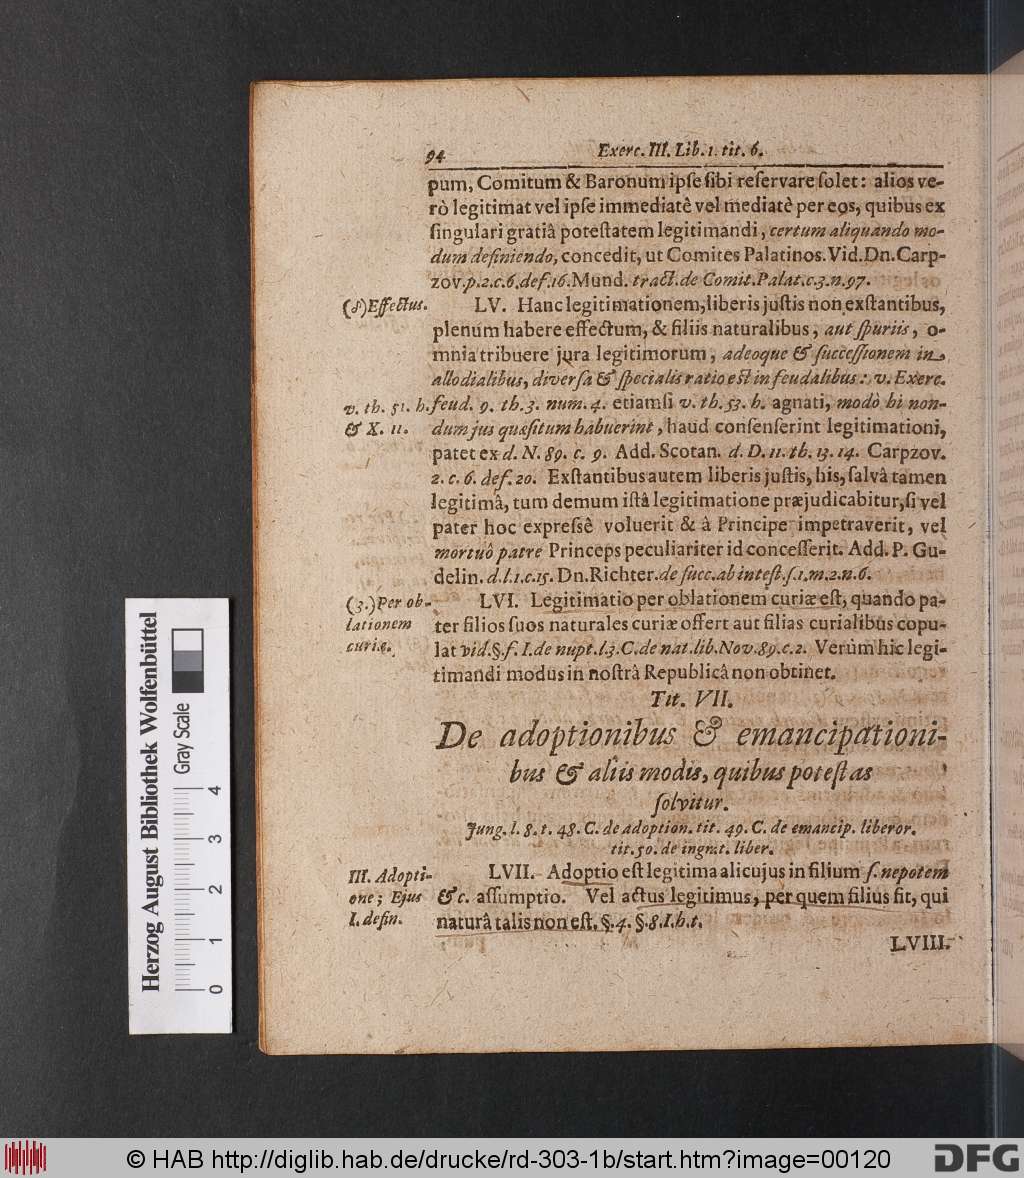 94
Exerc. III. Lib. 1. tit. 6.
pum, Comitum & Baronum ipſe ſibi reſervare ſolet: alios ve-
rò legitimat vel ipſe immediatê vel mediatè per eos, quibus ex
ſingulari gratiâ poteſtatem legitimandi, certum aliquando mo-
dum definiendo, concedit, ut Comites Palatinos. Vid. Dn. Carp-
zov. p. 2. c. 6. def. 16. Mund. tract. de Comit. Palat. c. 3. n. 97.
(8) Effectus.
LV. Hanc legitimationem, liberis juſtis non exſtantibus,
plenum habere effectum, & filiis naturalibus, aut ſpuriis, o-
mnia tribuere jura legitimorum, adeoque & ſucceſſionem in
allodialibus, diverſa & ſpecialis ratio eſt in feudalibus: v. Exerc.
v. th. 51. h.
& X. 11.
feud. 9. th. 3. num. 4. etiamſi v. th. 53. h. agnati, modò hi non-
dum jus quæſitum habuerint, haud conſenſerint legitimationi,
patet ex d. N. 89. c. 9. Add. Scotan. d. D. 11. th. 13. 14. Carpzov.
2. c. 6. def. 20. Exſtantibus autem liberis juſtis, his, ſalvâ tamen
legitimâ, tum demum iſtâ legitimatione præjudicabitur, ſi vel
pater hoc expreſsê voluerit & à Principe impetraverit, vel
mortuô patre Princeps peculiariter id conceſſerit. Add. P. Gu-
delin. d. l. 1. c. 15. Dn. Richter. de ſucc. ab inteſt. ſ. 1. m. 2. n. 6.
(3.) Per ob-
lationem
curiæ.
LVI. Legitimatio per oblationem curiæ eſt, quando pa-
ter filios ſuos naturales curiæ offert aut filias curialibus copu-
lat vid. §. f. I. de nupt. l. 3. C. de nat. lib. Nov. 89. c. 2. Verùm hic legi-
timandi modus in noſtrâ Republicâ non obtinet.
Tit. VII.
De adoptionibus & emancipationi-
bus & aliis modis, quibus poteſtas
ſolvitur.
Jung. l. 8. t. 48. C. de adoption. tit. 49. C. de emancip. liberor.
tit. 50. de ingrat. liber.
III. Adopti-
one; Ejus
I. defin.
LVII. Adoptio eſt legitima alicujus in filium ſ. nepotem
&c. aſſumptio. Vel actus legitimus, per quem filius fit, qui
naturâ talis non eſt. §. 4. §. 8. I. h. t.
LVIII.
Herzog August Bibliothek Wolfenbüttel
Gray Scale
0 1 2 3 4
© HAB http://diglib.hab.de/drucke/rd-303-1b/start.htm?image=00120
DFG